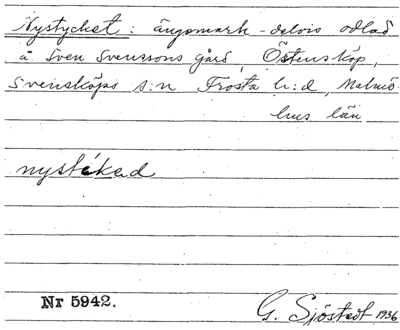 Nystycket: ängsmark - delvis odlad
å Sven Svenssons gård, Östensköp,
Svensköps s:n Frosta h:d, Malmö-
hus län
nystékad
Nr 5942.
G. Sjöstedt 1936